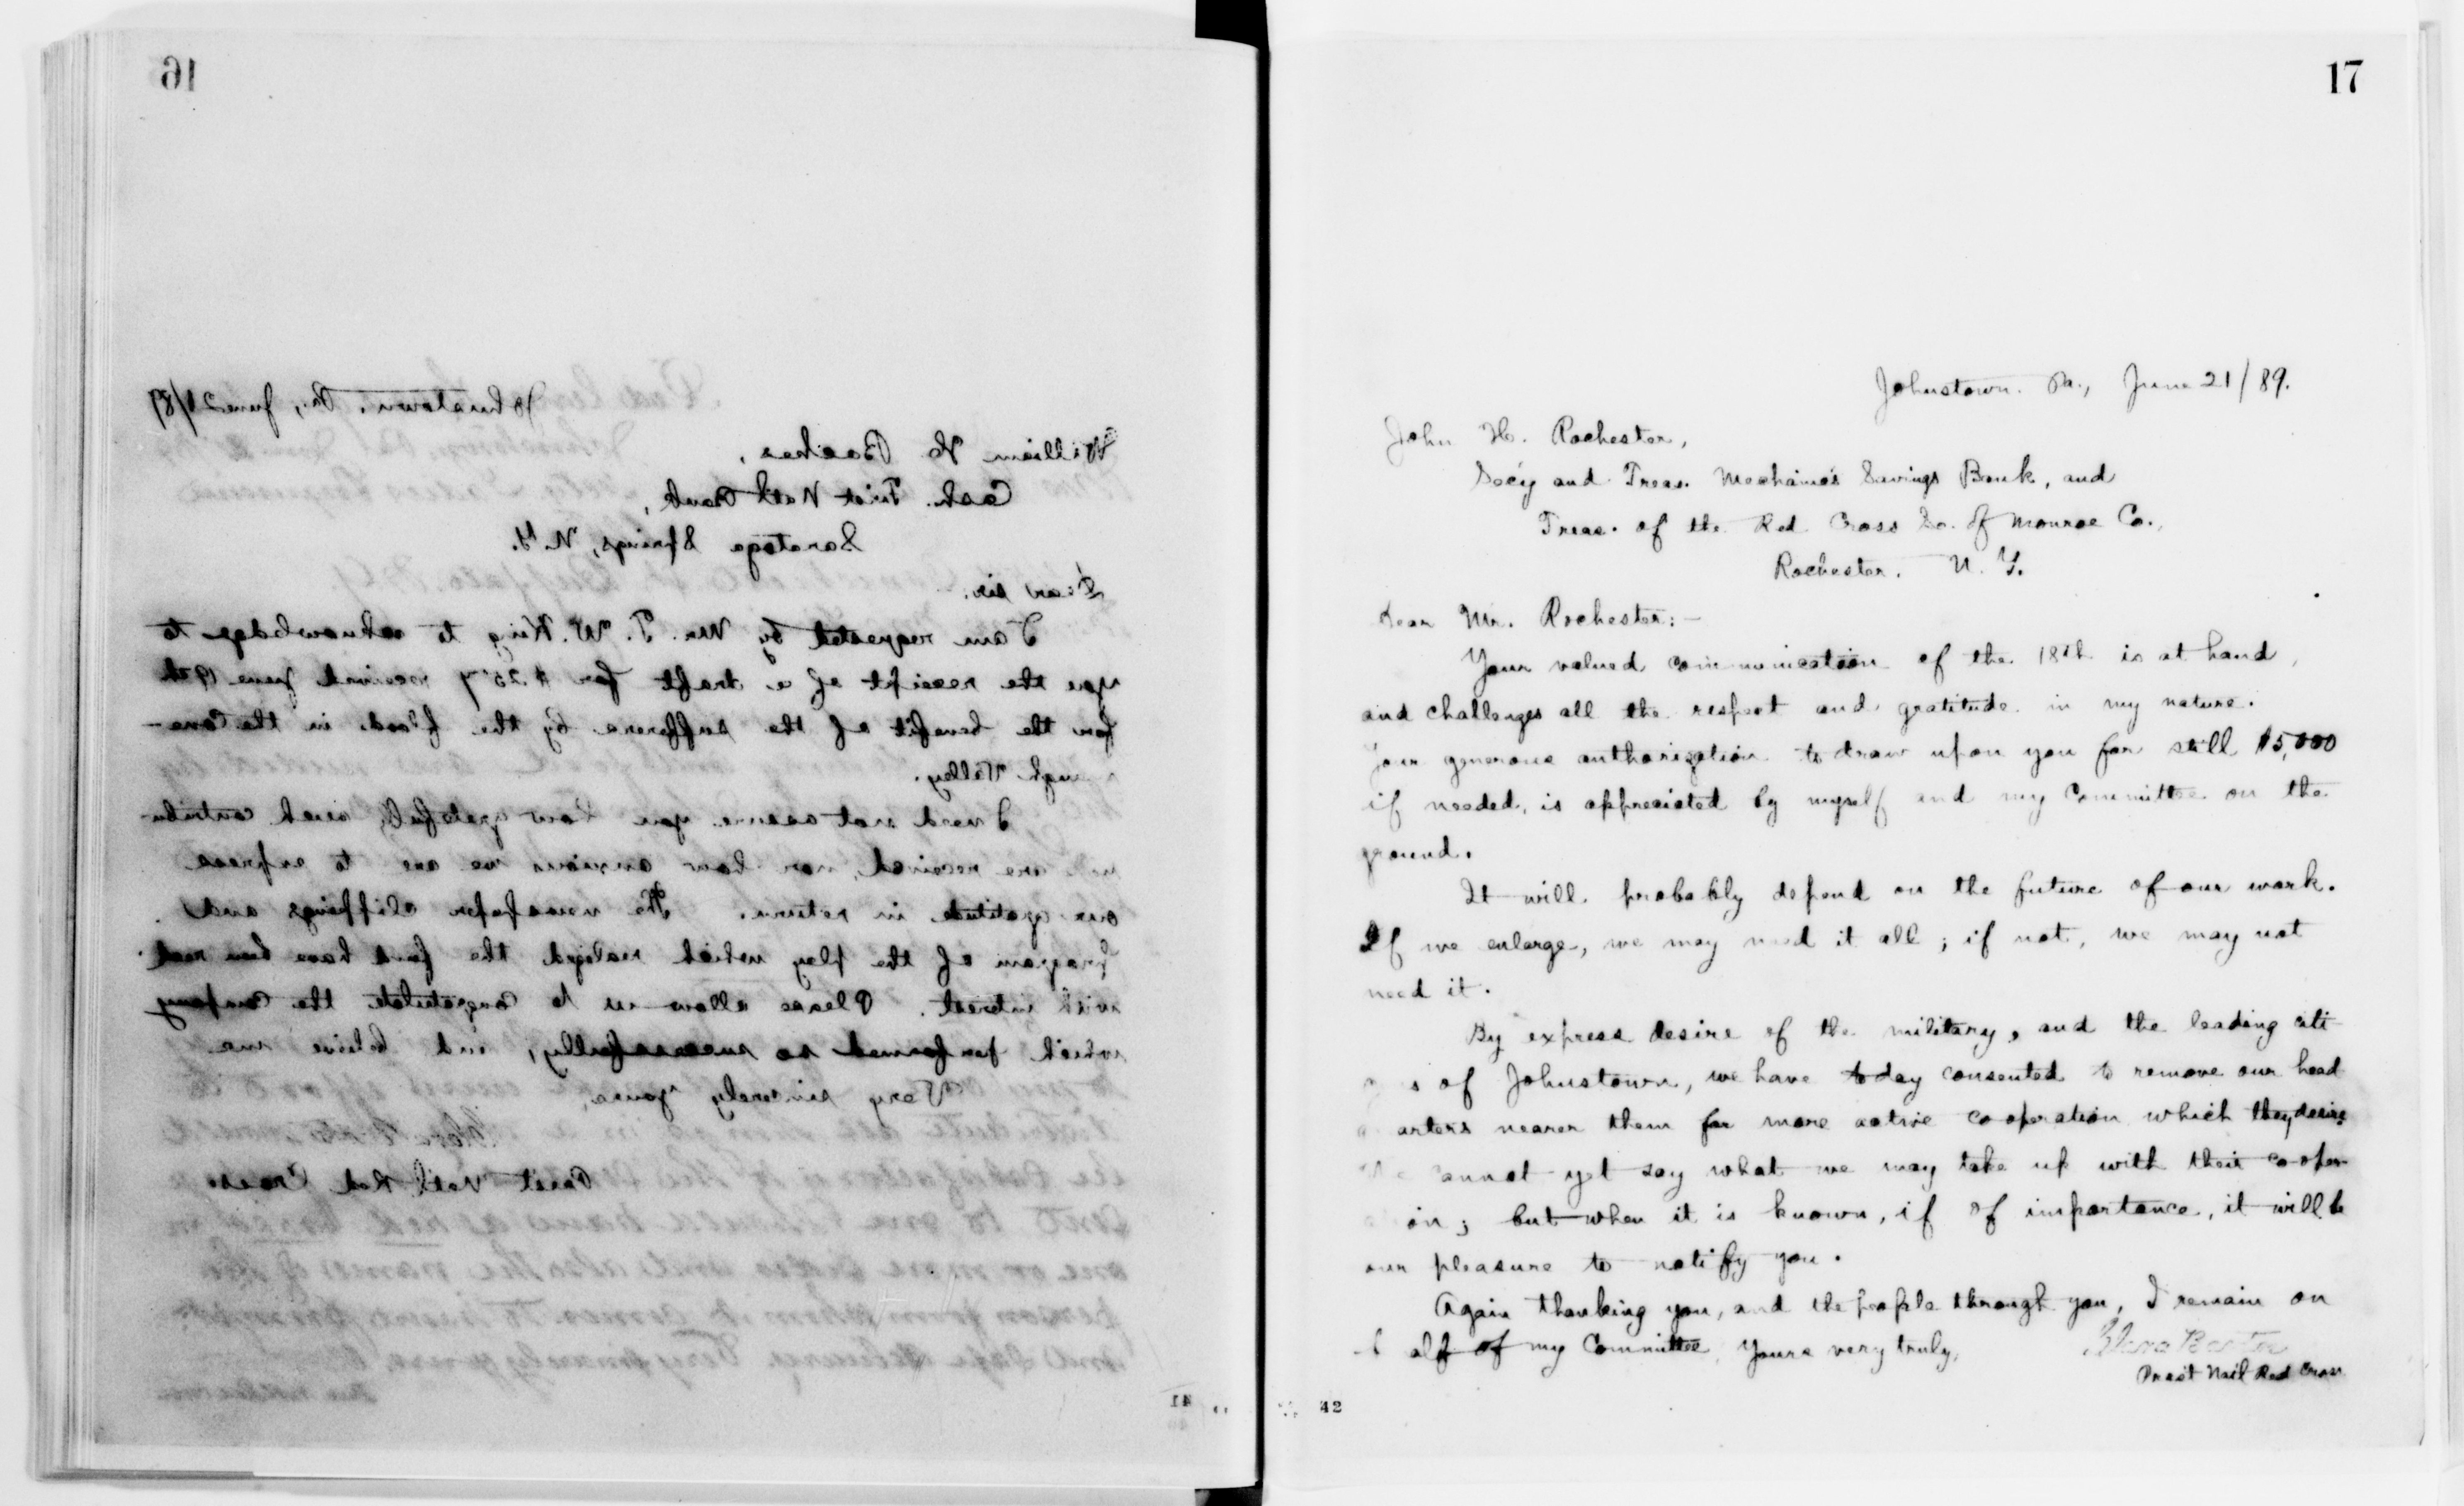 16
Johnstown, Pa., June 21/89
William H Baches,
Cash. First Nat'l Bank,
Saratoga Springs, N.Y.
Dear sir,
I am requested by Mr. T. W. King to acknowledge to
you the receipt of a draft for $257 received June 19th
for the benefit of the sufferers by the flood in the Cone-
augh Valley.
I need not assure you how gratefully such contribu-
are received, nor how anxious we are to express
our gratitude in return. The newspaper clippings and
program of the play which realized the fund have been read
with interest. Please allow us to congratulate the company
which performed so successfully, and believe me
Very sincerely yours,
Clara Barton
Prest Natl Red Cross
41
17
Johnstown. Pa., June 21/89.
John H. Rochester,
Sec'y and Treas. Mechanic's Savings Bank, and
Treas. of the Red Cross So. of Monroe Co.,
Rochester. N. Y.
Dear Mr. Rochester:—
Your valued communication of the 18th is at hand,
and challenges all the respect and gratitude in my nature.
Your generous authorization to draw upon you for still $5,000
if needed, is appreciated by myself and my Committee on the
ground.
It will probably depend on the future of our work.
If we enlarge, we may need it all; if not, we may not
need it.
By express desire of the military, and the leading citi
s of Johnstown, we have today consented to remove our head
arters nearer them for more active cooperation which they desire
We cannot yet say what we may take up with their co-oper
on; but when it is known, if of importance, it will be
our pleasure to notify you.
Again thanking you, and the people through you, I remain on
alf of my Committee, Yours very truly,
Clara Barton
Prest Nat'l Red Cross
42